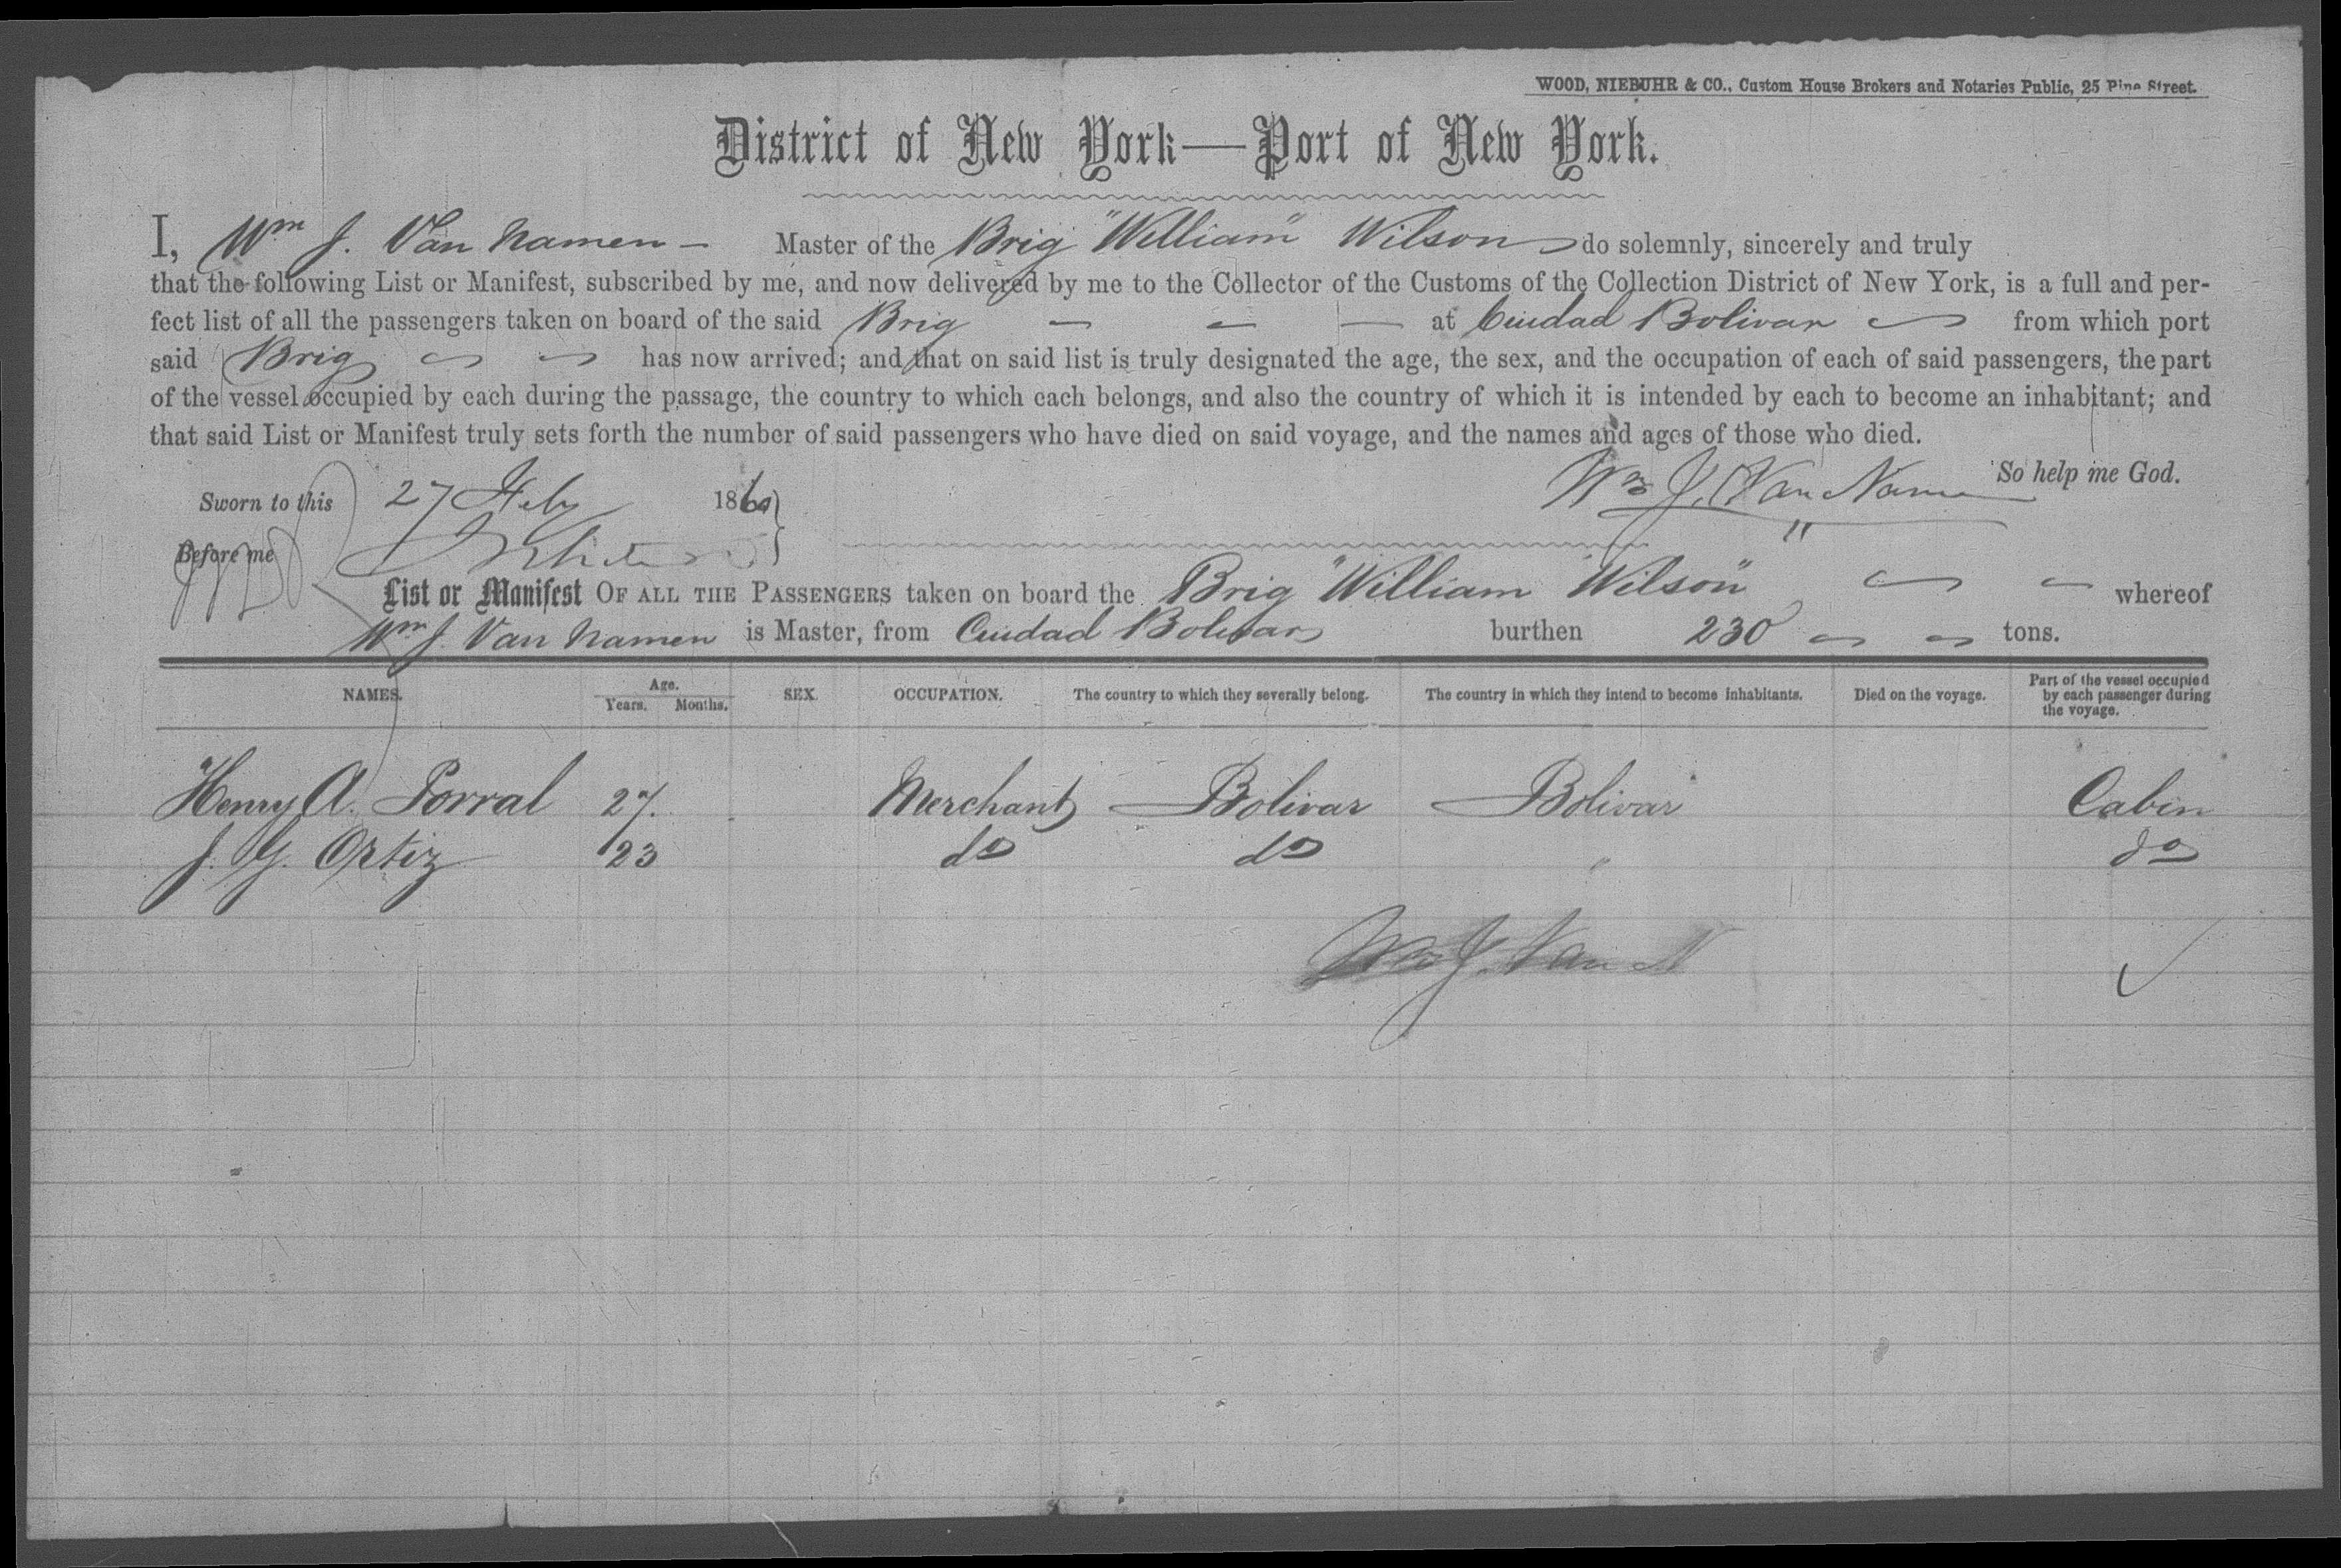 WOOD, NIEBUHR & CO., Custom House Brokers and Notaries Public, 25 Pine Street.
District of New York—Port of New York.
I, Wm J. Van Namen – Master of the Brig "William" Wilson do solemnly, sincerely and truly
that the following List or Manifest, subscribed by me, and now delivered by me to the Collector of the Customs of the Collection District of New York, is a full and per-
fect list of all the passengers taken on board of the said Brig – – – at Ciudad Bolivar from which port
said Brig has now arrived; and that on said list is truly designated the age, the sex, and the occupation of each of said passengers, the part
of the vessel occupied by each during the passage, the country to which each belongs, and also the country of which it is intended by each to become an inhabitant; and
that said List or Manifest truly sets forth the number of said passengers who have died on said voyage, and the names and ages of those who died.
So help me God.
Sworn to this 27 Feby 1860 } Wm J. Van Name
Before me
List or Manifest OF ALL THE PASSENGERS taken on board the Brig "William Wilson" whereof
Wm J. Van Namen is Master, from Ciudad Bolivar burthen 230 tons.
NAMES. Age. Years. Months. SEX. OCCUPATION. The country to which they severally belong. The country in which they intend to become inhabitants. Died on the voyage. Part of the vessel occupied by each passenger during the voyage.
Henry A. Porral 27. Merchant Bolivar Bolivar Cabin
J. G. Ortiz 23 do do " do
Wm J. Van N